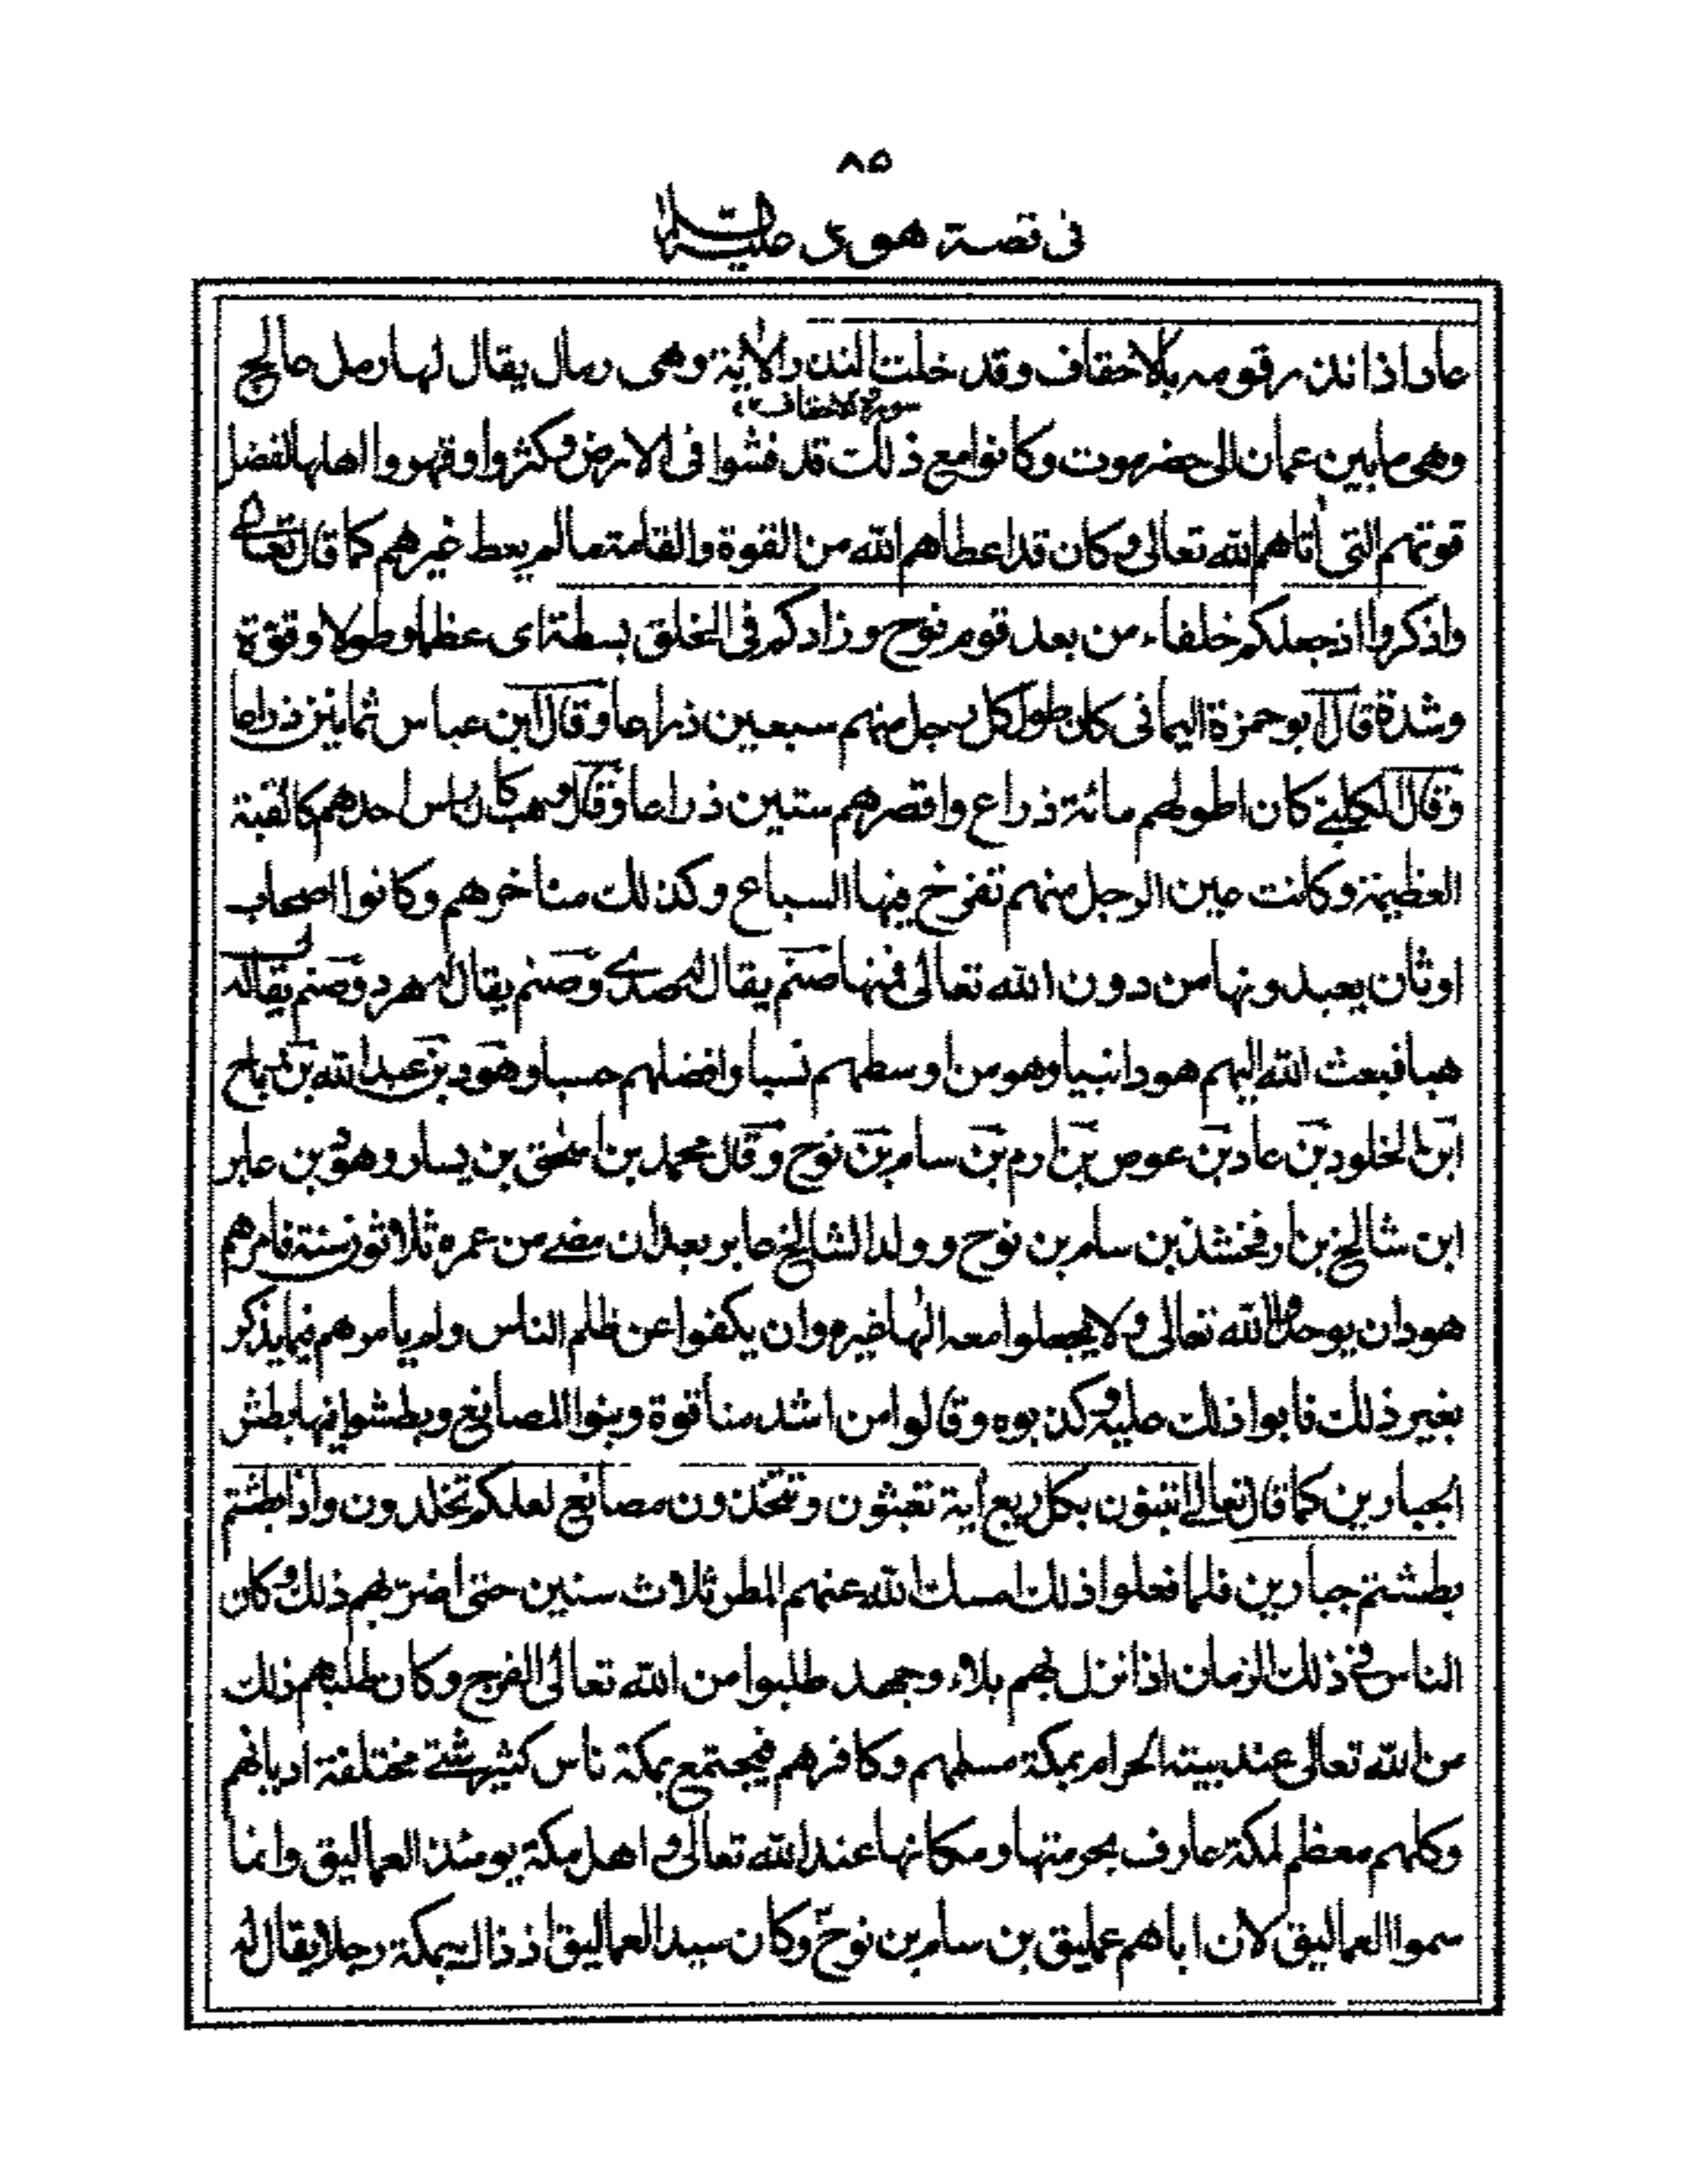 ٨٥
فی قصة هود علیه السلام
عاد اذ انذر قومه بالاحقاف وقد خلت النذر الاٰیة وهی رمال یقال لها رمل عالج
سورة الاحقاف
وهی مابین عمان الی حضرموت وكانوا مع ذلك قد فشوا فی الارض وكثروا وقهروا اهلها لفضل
قوتهم التی اٰتاهم الله تعالی وكان قد اعطاهم الله من القوة والقامة ما لم یعط غیرهم كما قال تعالی
واذكروا اذ جعلكم خلفاء من بعد قوم نوح وزادكم فی الخلق بسطة ای عظما وطولا وقوة
وشدة قال ابو حمزة الیمانی كان طول كل رجل منهم سبعین ذراعا وقال ابن عباس ثمانین ذراعا
وقال الكلبی كان اطولهم مائة ذراع واقصرهم ستین ذراعا وقال وهب كان راس احدهم كالقبة
العظیمة وكانت عین الرجل منهم تفرخ فیها السباع وكذلك مناخرهم وكانوا اصحاب
اوثان یعبدونها من دون الله تعالی فمنها صنم یقال له صدی وصنم یقال له هرد وصنم یقال له
هبا فبعث الله الیهم هودا نبیا وهو من اوسطهم نسبا وافضلهم حسبا وهود بن عبد الله بن رباح
ابن الخلود بن عاد بن عوص بن ارم بن سام بن نوح وقال محمد بن اسحٰق بن یسار وهود بن عابر
ابن شالخ بن ارفخشذ بن سام بن نوح وولد الشالخ عابر بعد ان مضی من عمره ثلاثون سنة فامرهم
هود ان یوحدوا الله تعالی ولا یجعلوا معه الٰها غیره وان یكفوا عن ظلم الناس ولم یامرهم فیما یذكر
بغیر ذلك فابوا ذلك علیه وكذبوه وقالوا من اشد منا قوة وبنوا المصانع وبطشوا فیها بطش
الجبارین كما قال تعالی اتبنون بكل ریع اٰیة تعبثون وتتخذون مصانع لعلكم تخلدون واذا بطشتم
بطشتم جبارین فلما فعلوا ذلك امسك الله عنهم المطر ثلاث سنین حتی اضر بهم ذلك وكان
الناس فی ذلك الزمان اذا نزل بهم بلاء وجهد طلبوا من الله تعالی الفرج وكان طلبهم ذلك
من الله تعالی عند بیته الحرام بمكة مسلمهم وكافرهم فیجتمع بمكة ناس كثیر شتی مختلفة ادیانهم
وكلهم معظم لمكة عارف بحرمتها ومكانها عند الله تعالی واهل مكة یومئذ العمالیق وانما
سموا العمالیق لان اباهم عملیق بن سام بن نوح وكان سید العمالیق اذ ذاك بمكة رجلا یقال له